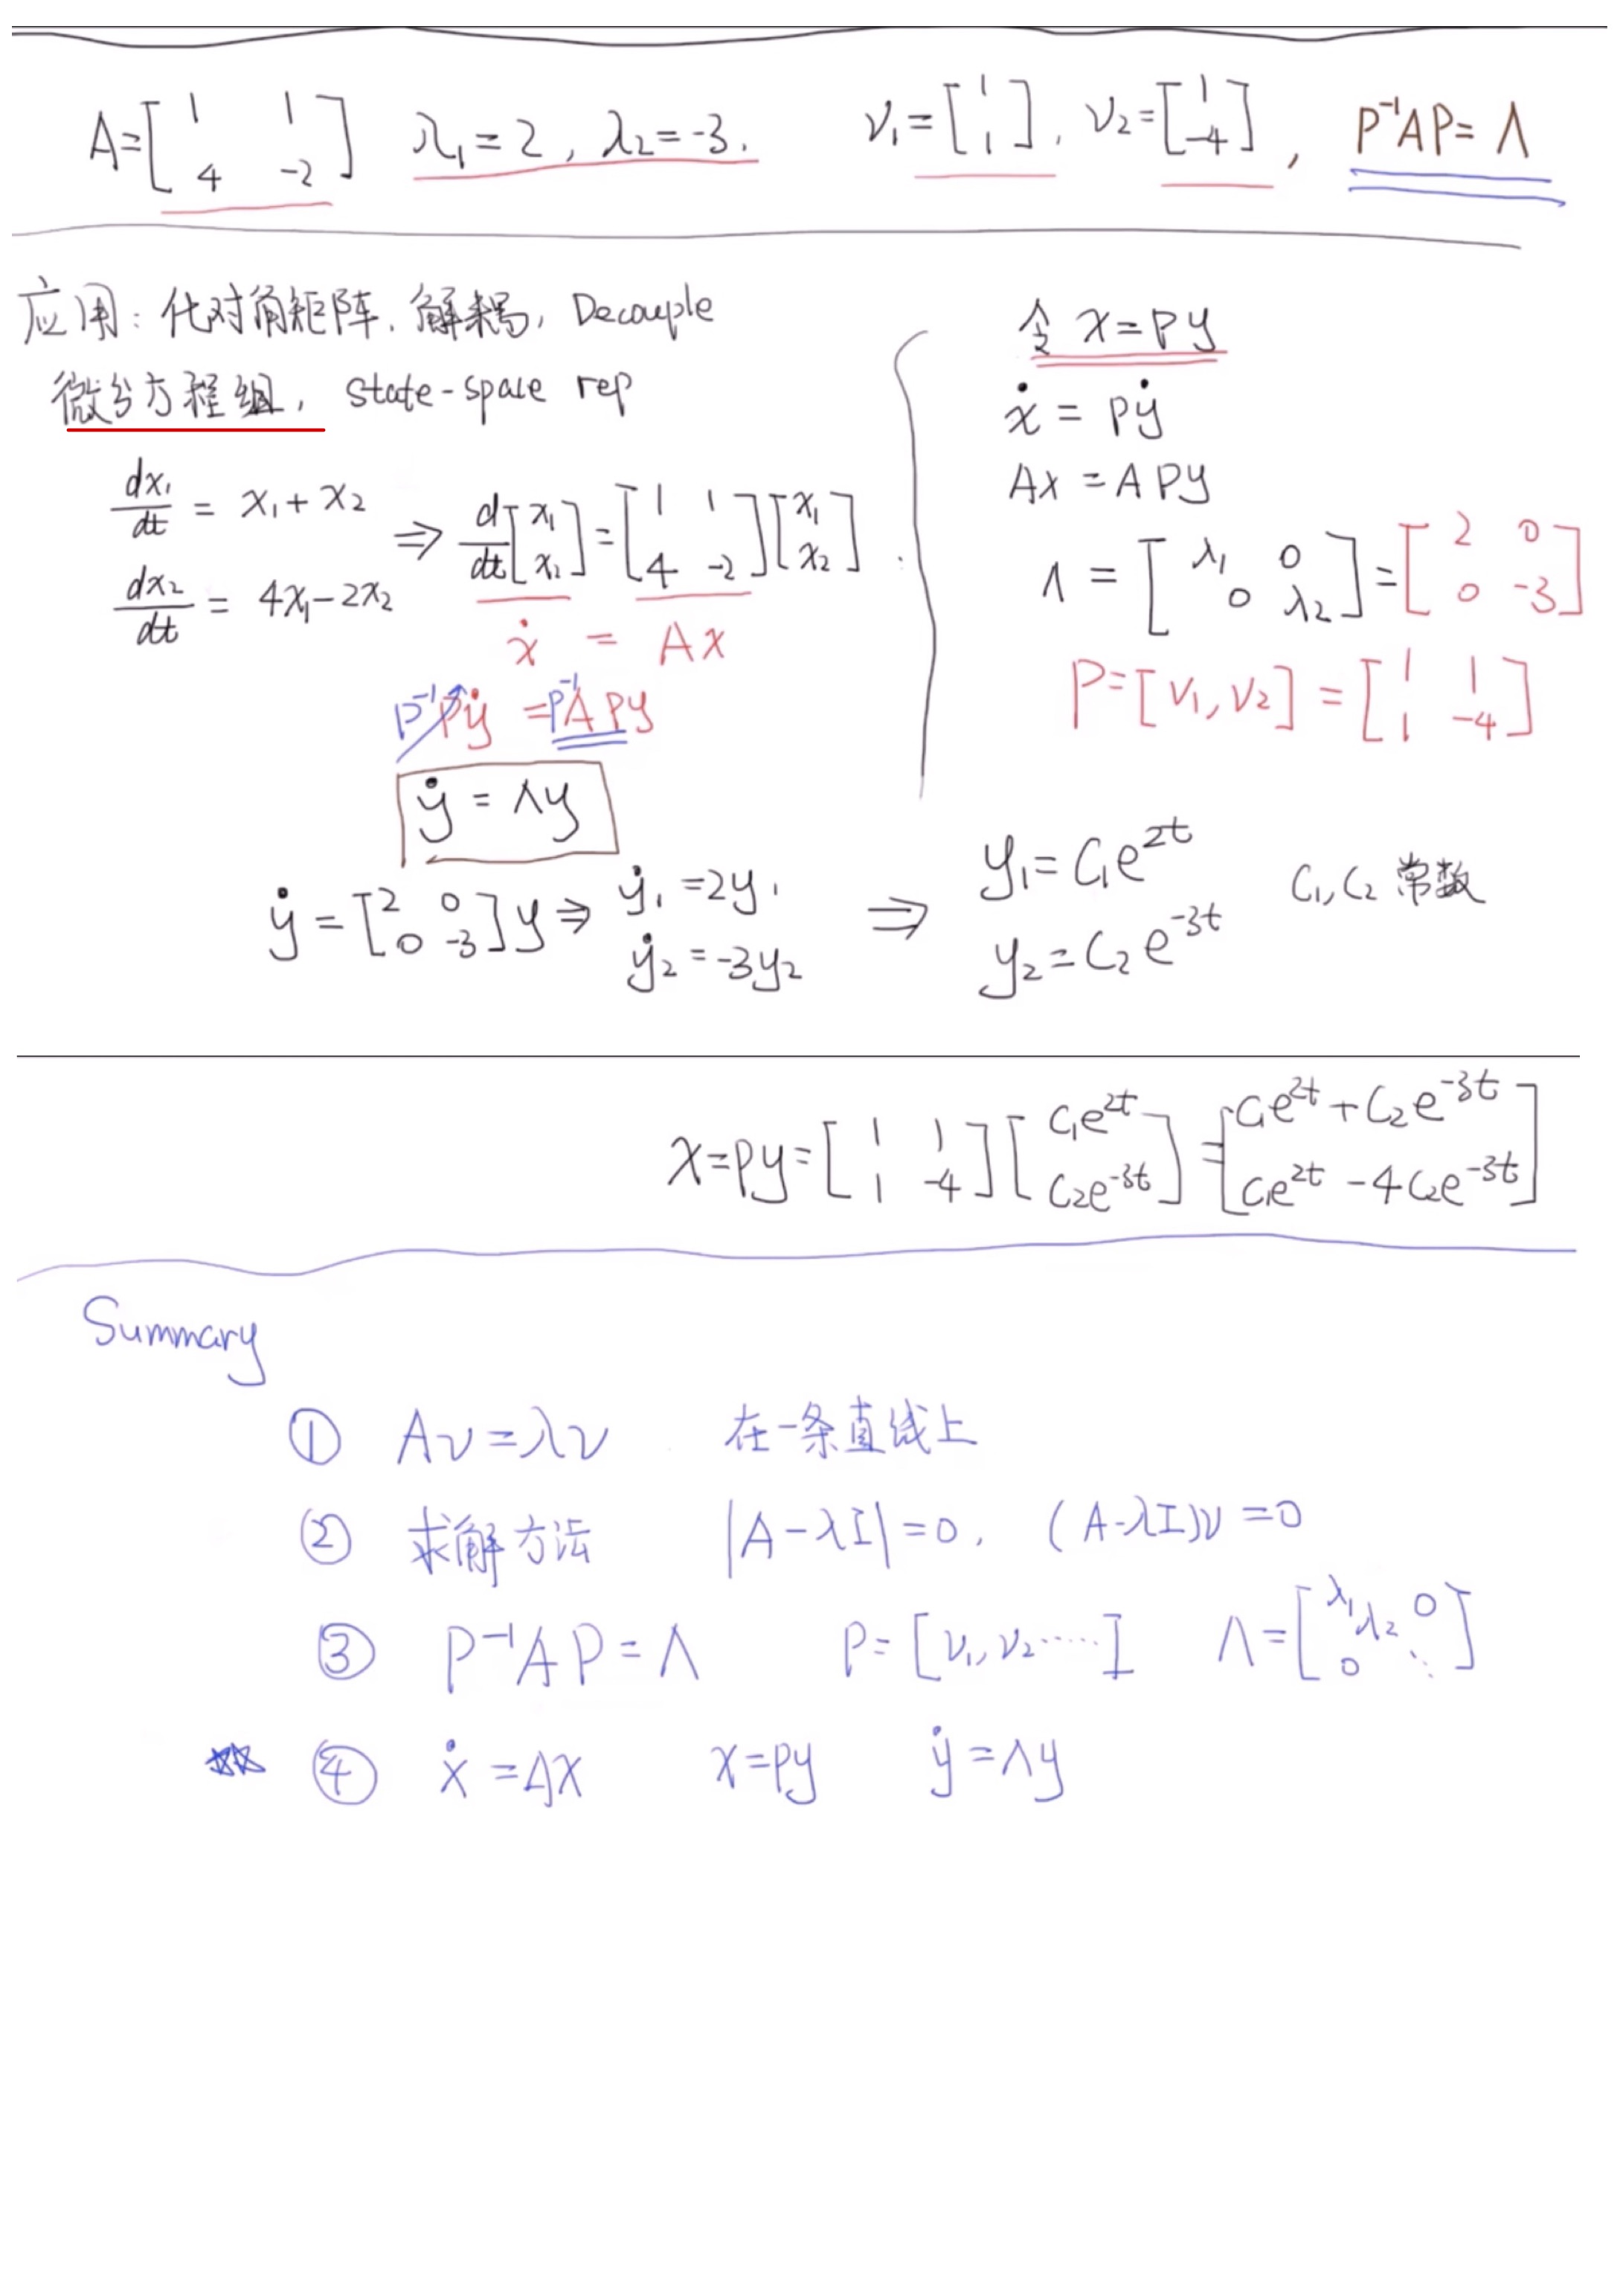 A=[1 1; 4 -2] λ₁=2, λ₂=-3. v₁=[1; 1], v₂=[1; -4], P⁻¹AP=Λ
应用: 化对角矩阵, 解耦, Decouple
微分方程组, state-space rep
dx₁/dt = x₁+x₂
dx₂/dt = 4x₁-2x₂
⇒ d/dt[x₁; x₂]=[1 1; 4 -2][x₁; x₂].
ẋ = Ax
P⁻¹Pẏ =P⁻¹APy
ẏ = Λy
令 x=Py
ẋ = Pẏ
Ax = APy
Λ = [λ₁ 0; 0 λ₂]=[2 0; 0 -3]
P=[v₁, v₂] = [1 1; 1 -4]
ẏ = [2 0; 0 -3]y ⇒ ẏ₁=2y₁
ẏ₂=-3y₂
⇒ y₁=C₁e^{2t}
y₂=C₂e^{-3t}
C₁, C₂ 常数
x=Py=[1 1; 1 -4][C₁e^{2t}; C₂e^{-3t}]=[C₁e^{2t}+C₂e^{-3t}; C₁e^{2t}-4C₂e^{-3t}]
Summary
① Av=λv 在一条直线上
② 求解方法 |A-λI|=0, (A-λI)v=0
③ P⁻¹AP=Λ P=[v₁, v₂⋯⋯] Λ=[λ₁ λ₂ 0; 0 ⋱]
④ ẋ=AX x=Py ẏ=Λy